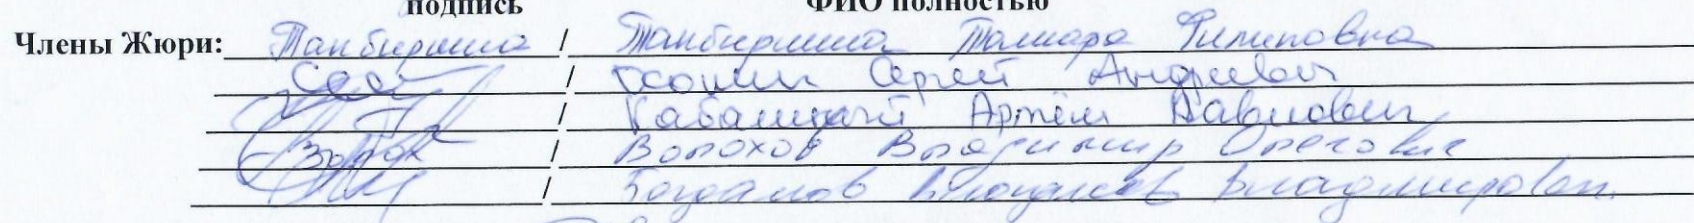 подпись ФИО полностью
Члены Жюри: Танбиршина / Танбиршина Тамара Филиповна
/ Сергей Андреевич
/ Кабалицкий Артём Павлович
/ Волохов Владимир Олегович
/ Богданов Владимирович